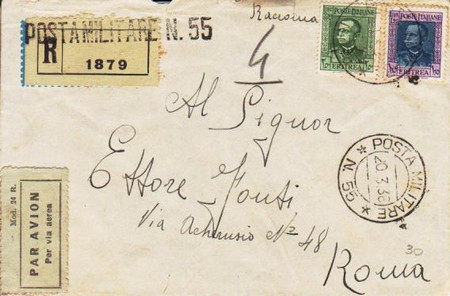 POSTA MILITARE N. 55
R
1879
Raccom
4
POSTE ITALIANE
ERITREA
POSTE ITALIANE
ERITREA
Al Signor
Ettore Fonti
Via Acherusio N° 48
Roma
POSTA MILITARE
20.7.36
* N. 55 *
Mod. 24 R.
PAR AVION
Per via aerea
30